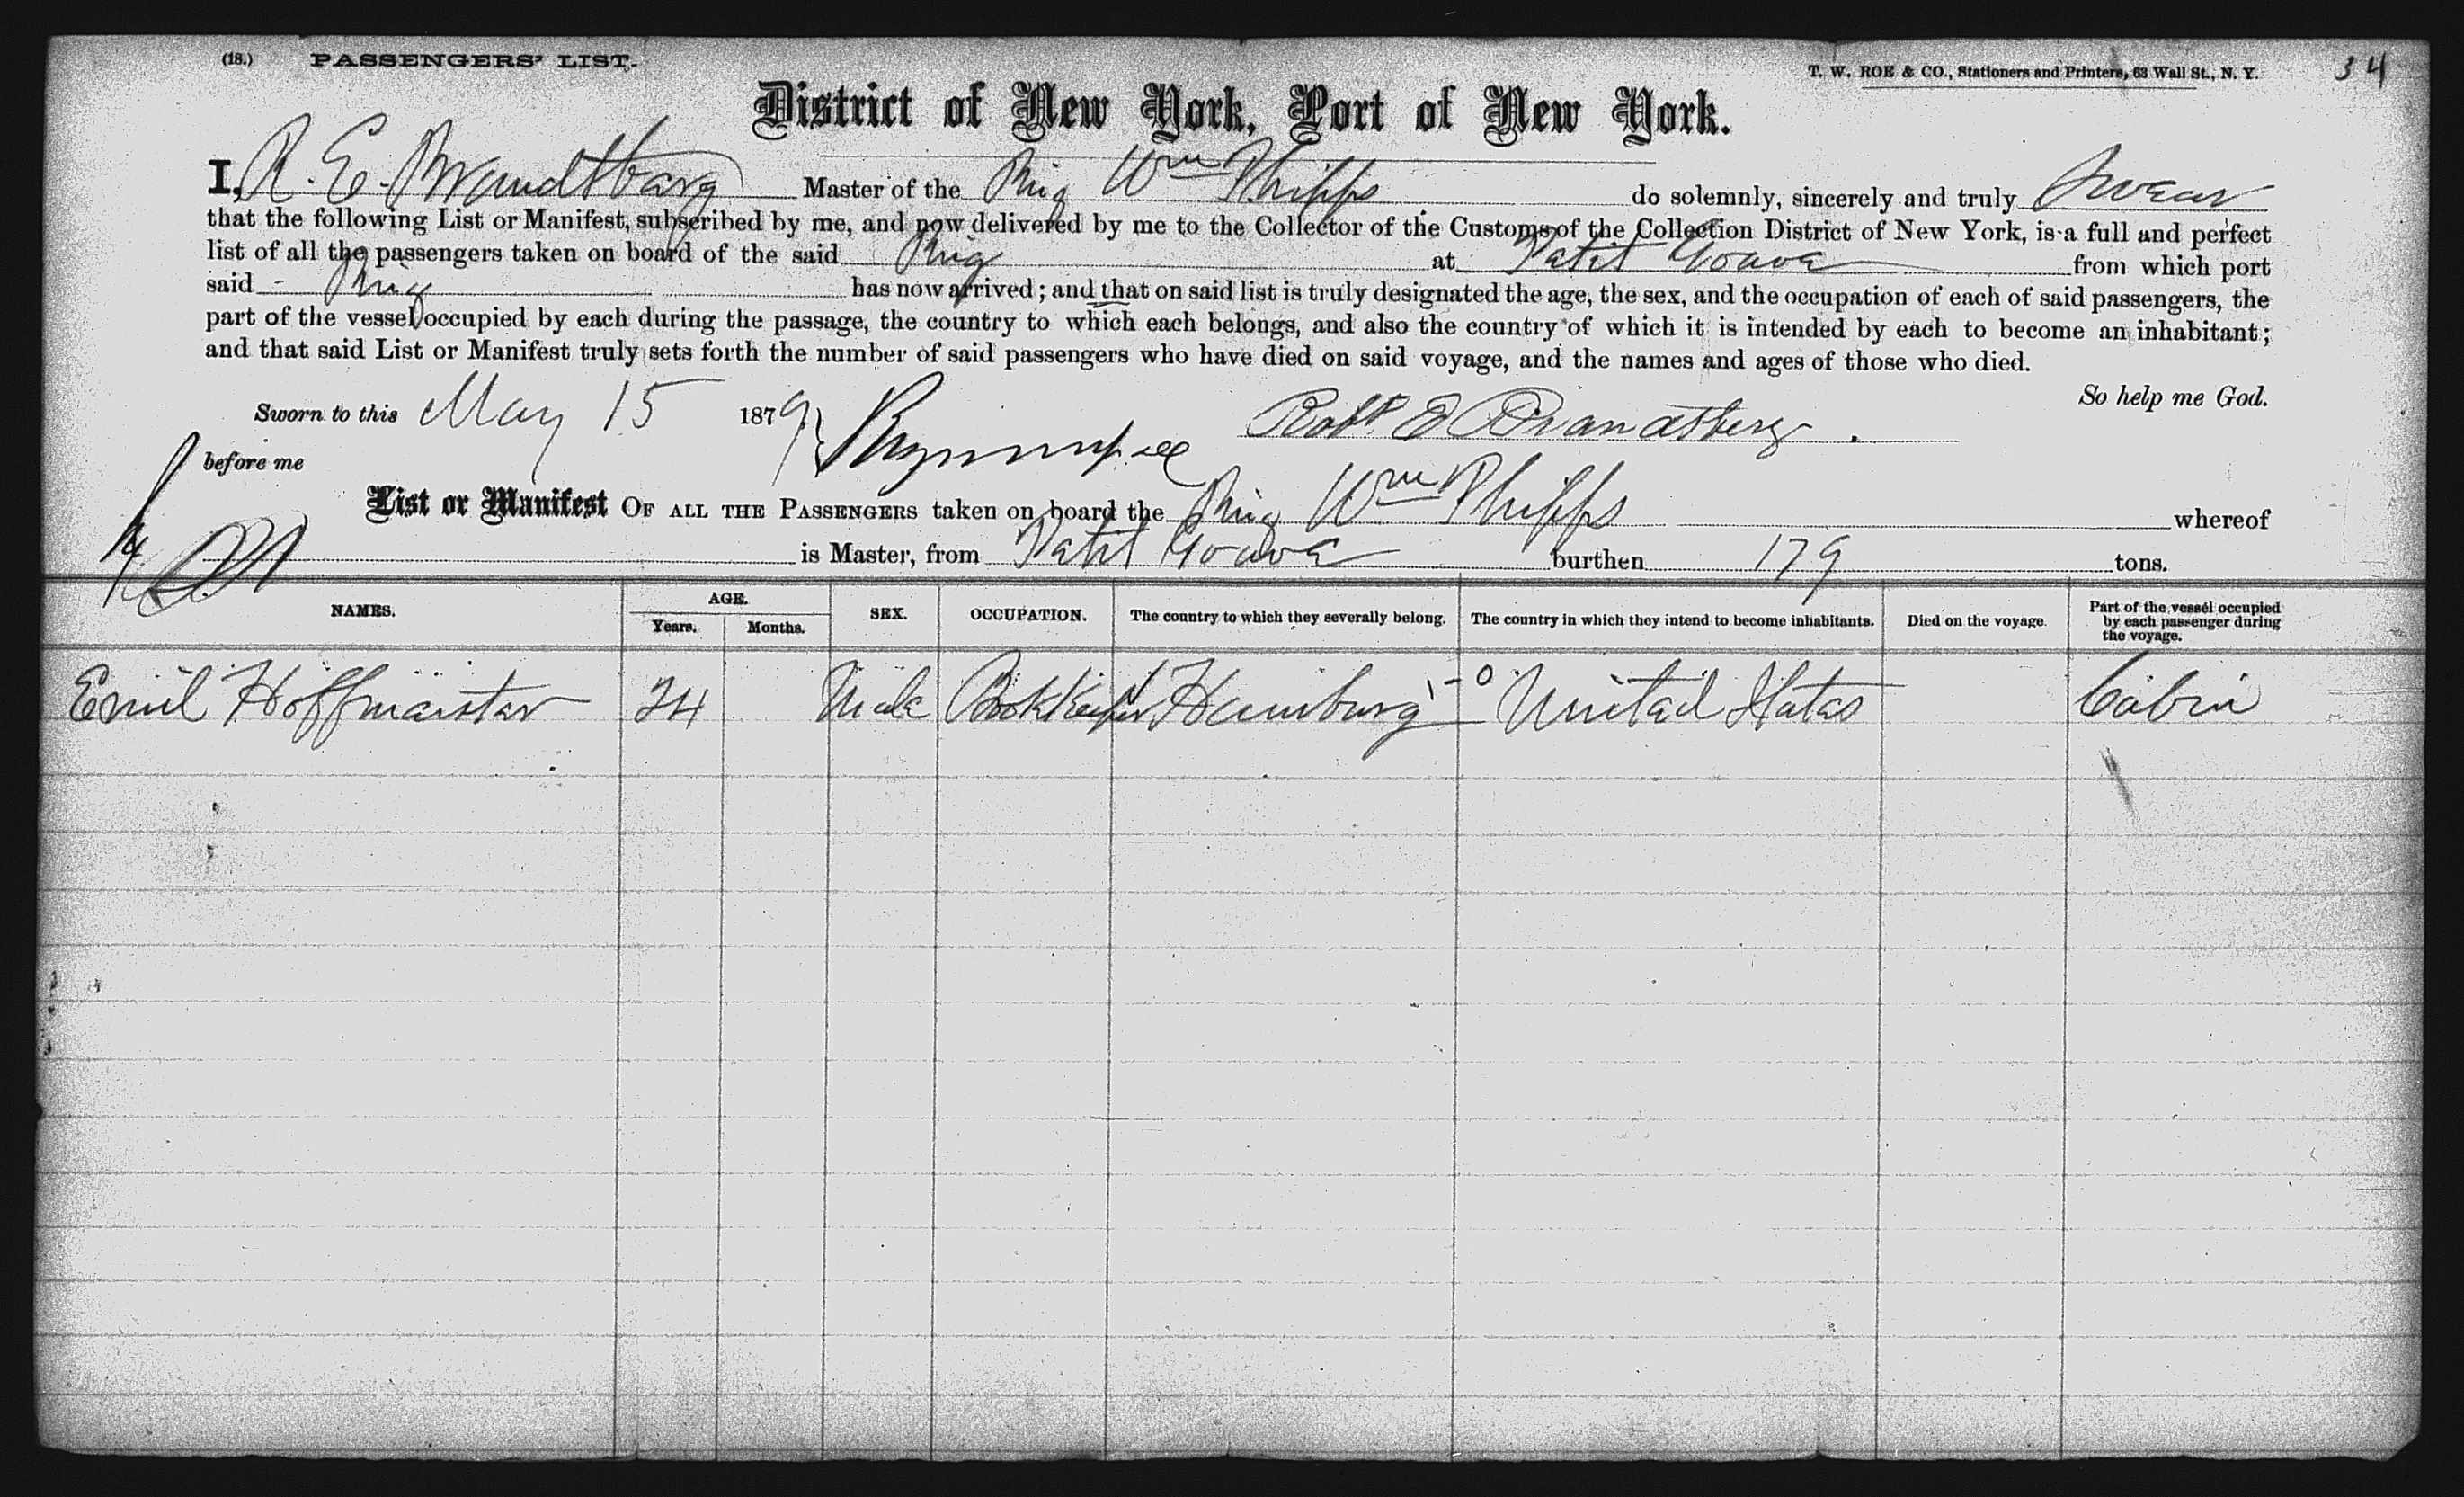 (18.) PASSENGERS' LIST. T. W. ROE & CO., Stationers and Printers, 63 Wall St., N. Y. 34
District of New York, Port of New York.
I, R. E. Brandtberg Master of the Brig Wm Phipps do solemnly, sincerely and truly Swear
that the following List or Manifest, subscribed by me, and now delivered by me to the Collector of the Customs of the Collection District of New York, is a full and perfect
list of all the passengers taken on board of the said Brig at Petit Goave from which port
said - Brig has now arrived; and that on said list is truly designated the age, the sex, and the occupation of each of said passengers, the
part of the vessel occupied by each during the passage, the country to which each belongs, and also the country of which it is intended by each to become an inhabitant;
and that said List or Manifest truly sets forth the number of said passengers who have died on said voyage, and the names and ages of those who died.
So help me God.
Sworn to this May 15 1879 Robt. E Brandtberg
before me
List or Manifest OF ALL THE PASSENGERS taken on board the Brig Wm Phipps whereof
is Master, from Petit Goave burthen 179 tons.
NAMES. AGE. Years. Months. SEX. OCCUPATION. The country to which they severally belong. The country in which they intend to become inhabitants. Died on the voyage. Part of the vessel occupied by each passenger during the voyage.
Emil Hoffmeister 24 Male Bookkeeper Hamburg 1-0 United States Cabin